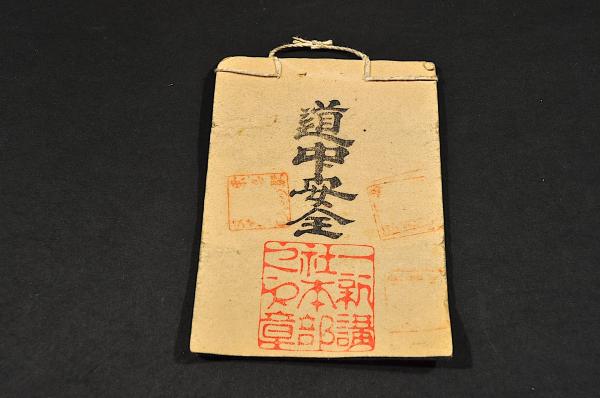 道中安全
一新講
社本部
之印章